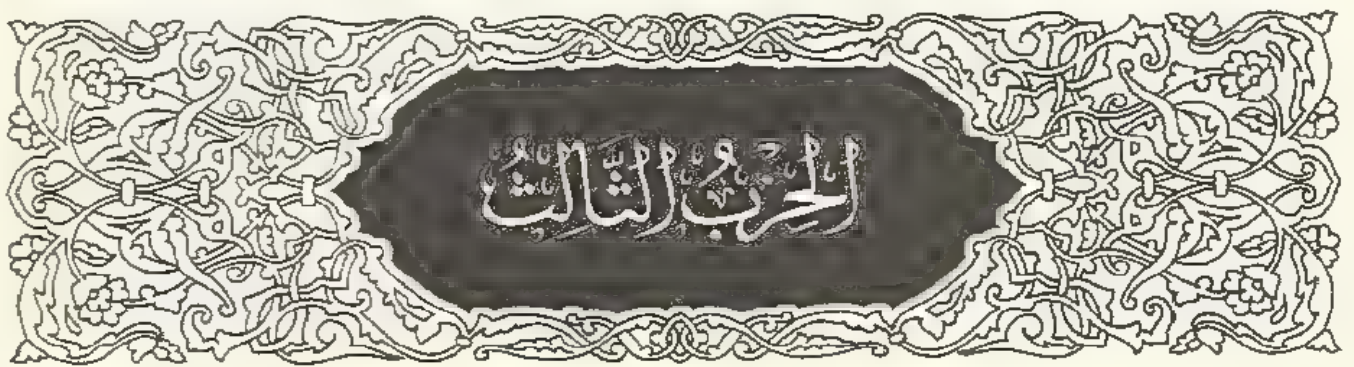 الْحِزْبُ الثَّالِثُ